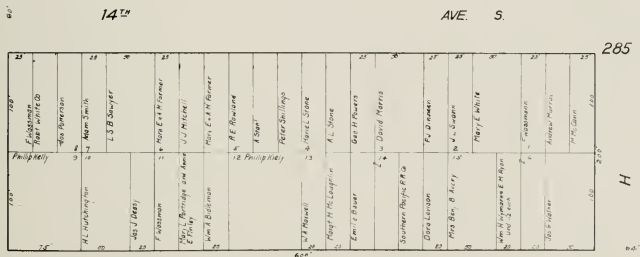 14TH AVE. S.
80'
285
25 25 50 25 25 50 25 50 25 25
100'
F Wassman
Robt White Co
Jos Patterson
Adam Smith
L S B Sawyer
Mara E & A H Farmer
J J Mitchell
Mary E & A H Farmer
R E Rowland
A Stant
Peter Skillings
Marie L Stone
A L Stone
Geo H Powers
David Morris
F J Dineen
J L Swann
Mary E White
F Wassmann
Andrew Murray
M McCann
100'
8 7 6 5 4 3 2 1
Phillip Kelly 9 10 11 12 Phillip Kiely 13 14 15
200'
H
100'
H L Hutchington
Jos J Deasy
F Wassman
Mary L Partridge and Anna E Finley
Wm A Bateman
W A Maxwell
Margt M McLaughlin
Emilie Bauer
Southern Pacific R R Co
Dora Levison
Mrs Ben. B Avery
Wm H Wyman & E M Ryan und ½ each
Jos H Wallner
75
600'